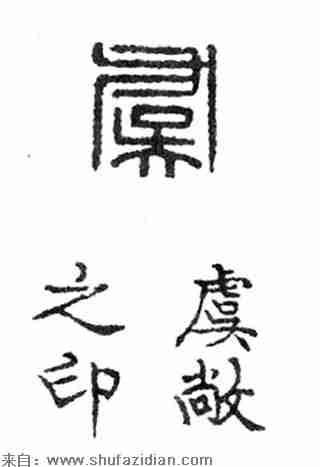 虞
虞敞
之印
来自：www.shufazidian.com